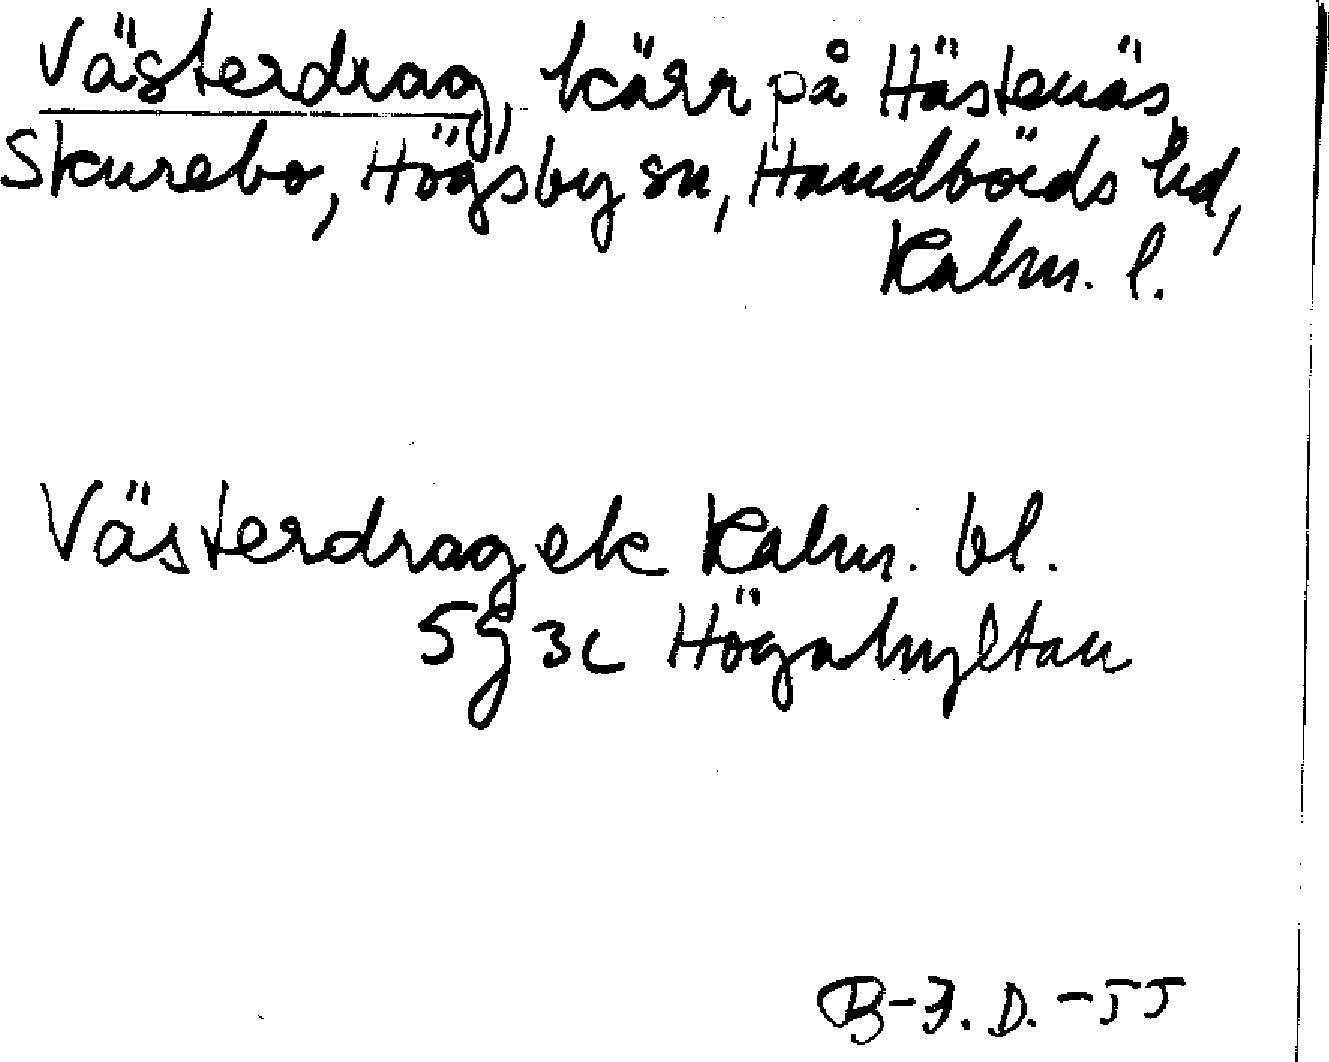 Västerdrag, kärr på Hästenäs,
Skurebo, Högsby sn, Handbörds hd,
Kalm. l.
Västerdrag ek Kalm. bl.
5g 3c Högahyltan
B-J. D. -55